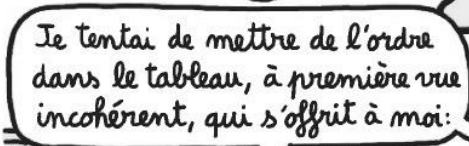 Je tentai de mettre de l'ordre
dans le tableau, à première vue
incohérent, qui s'offrit à moi: